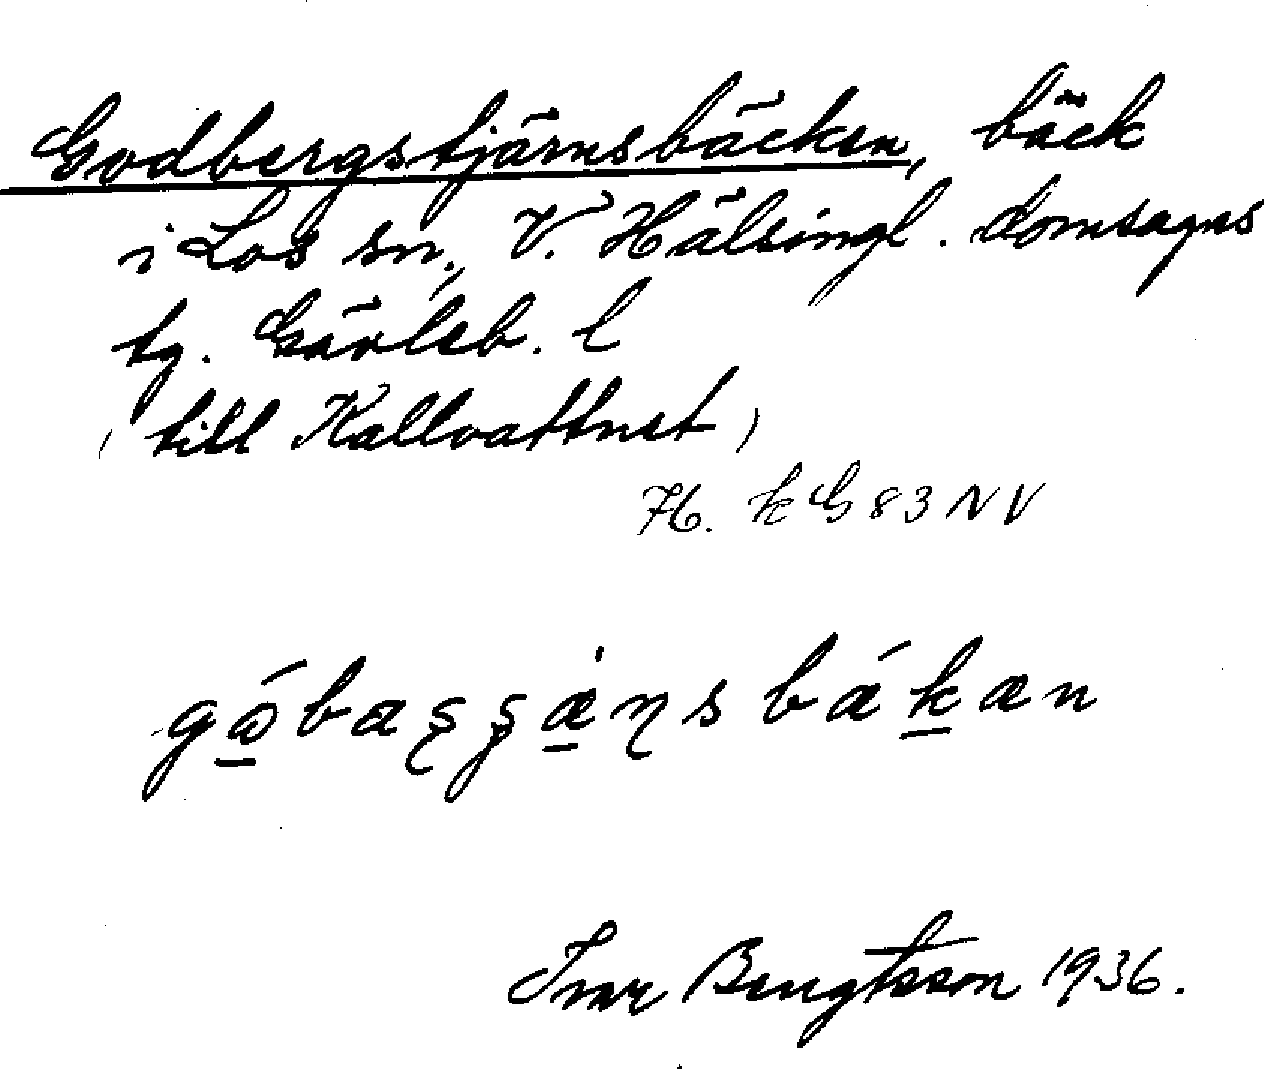 Godbergstjärnsbäcken, bäck
i Los sn., V. Hälsingl. domsagas
tg. Gävleb. l
(till Kallvattnet)
H. kG83NV
Ivar Bengtsson 1936.